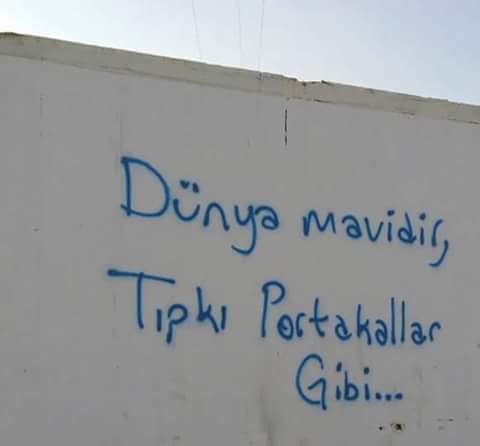 Dünya mavidir,
Tıpkı Portakallar
Gibi...